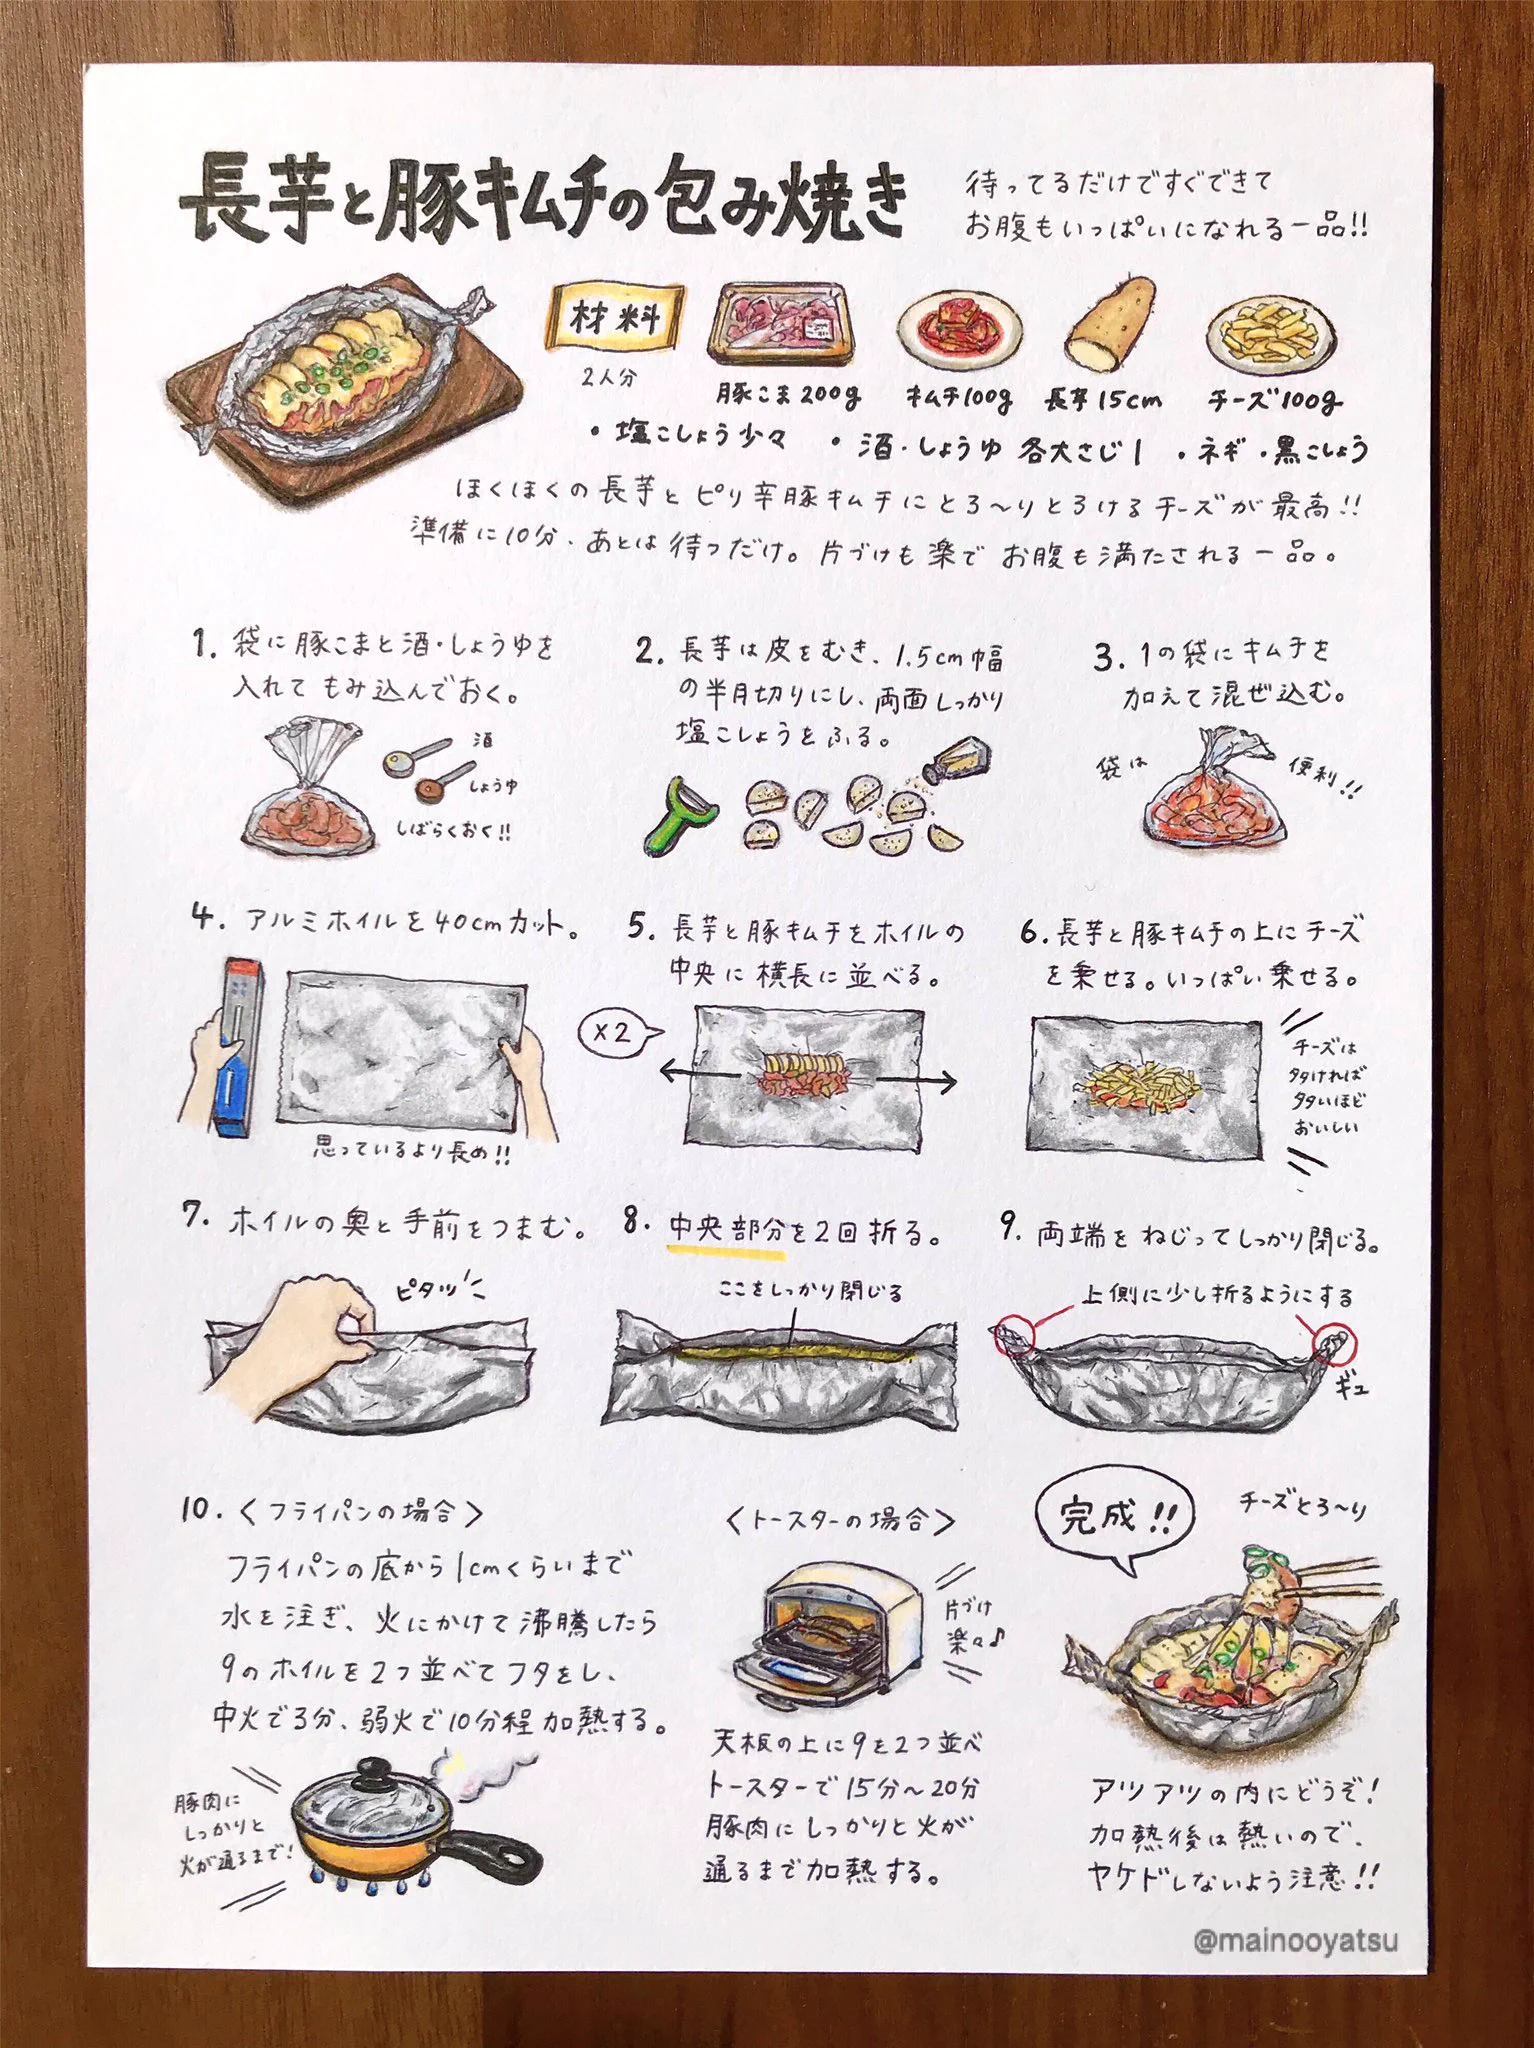 長芋と豚キムチの包み焼き
待ってるだけですぐできて
お腹もいっぱいになれる一品!!
材料
2人分
豚こま200g
キムチ100g
長芋15cm
チーズ100g
・塩こしょう少々 ・酒・しょうゆ 各大さじ1 ・ネギ・黒こしょう
ほくほくの長芋とピリ辛豚キムチにとろ〜りとろけるチーズが最高!!
準備に10分、あとは待つだけ。片づけも楽でお腹も満たされる一品。
1. 袋に豚こまと酒・しょうゆを
入れてもみ込んでおく。
酒
しょうゆ
しばらくおく!!
2. 長芋は皮をむき、1.5cm幅
の半月切りにし、両面しっかり
塩こしょうをふる。
3. 1の袋にキムチを
加えて混ぜ込む。
袋は
便利!!
4. アルミホイルを40cmカット。
思っているより長め!!
5. 長芋と豚キムチをホイルの
中央に横長に並べる。
×2
6. 長芋と豚キムチの上にチーズ
を乗せる。いっぱい乗せる。
チーズは
多ければ
多いほど
おいしい
7. ホイルの奥と手前をつまむ。
ピタッ
8. 中央部分を2回折る。
ここをしっかり閉じる
9. 両端をねじってしっかり閉じる。
上側に少し折るようにする
ギュ
10. <フライパンの場合>
フライパンの底から1cmくらいまで
水を注ぎ、火にかけて沸騰したら
9のホイルを2つ並べてフタをし、
中火で3分、弱火で10分程加熱する。
豚肉に
しっかりと
火が通るまで!
<トースターの場合>
片づけ
楽々♪
天板の上に9を2つ並べ
トースターで15分〜20分
豚肉にしっかりと火が
通るまで加熱する。
完成!!
チーズとろ〜り
アツアツの内にどうぞ!
加熱後は熱いので、
ヤケドしないよう注意!!
@mainooyatsu